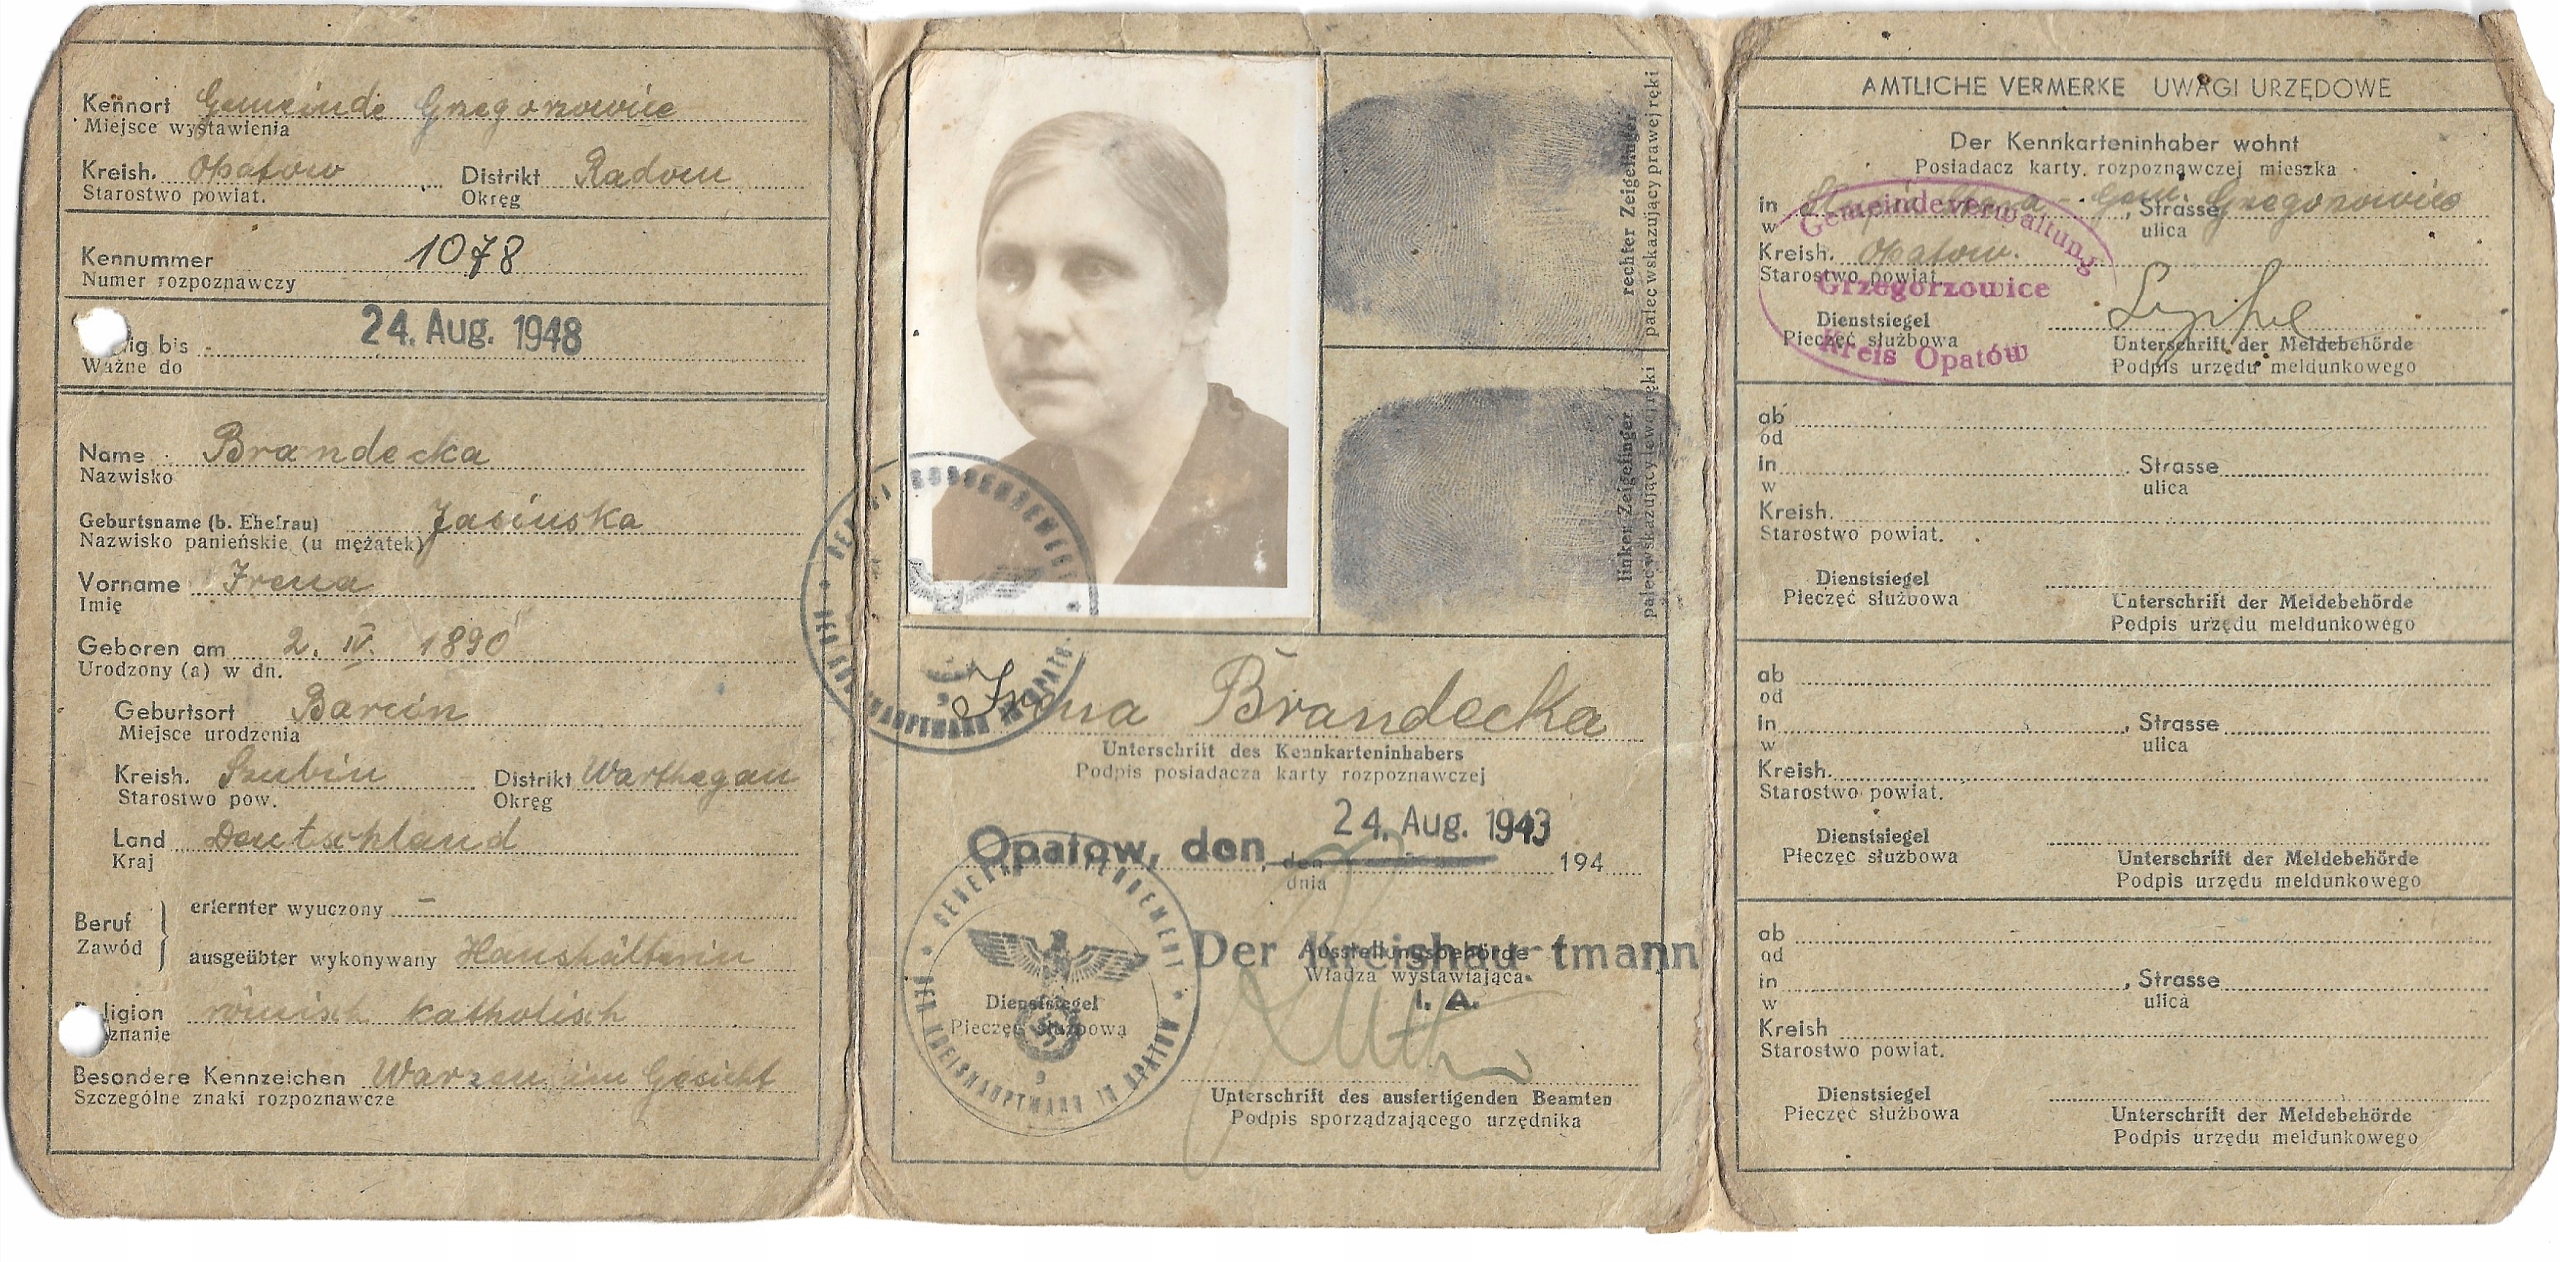 Kennort Gemeinde Gregorzowice
Miejsce wystawienia
Kreish. Opatow Distrikt Radom
Starostwo powiat. Okręg
Kennummer 1078
Numer rozpoznawczy
ig bis 24. Aug. 1948
Ważne do
Name Brandecka
Nazwisko
Geburtsname (b. Ehefrau) Jasinska
Nazwisko panieńskie (u mężatek)
Vorname Irena
Imię
Geboren am 2. IV. 1890
Urodzony (a) w dn.
Geburtsort Barcin
Miejsce urodzenia
Kreish. Szubin Distrikt Warthegau
Starostwo pow. Okręg
Land Deutschland
Kraj
Beruf erlernter wyuczony –
Zawód ausgeübter wykonywany Haushälterin
ligion römisch katholisch
znanie
Besondere Kennzeichen Warzen im Gesicht
Szczególne znaki rozpoznawcze
rechter Zeigefinger
palec wskazujący prawej ręki
linker Zeigefinger
palec wskazujący lewej ręki
Irena Brandecka
Unterschrift des Kennkarteninhabers
Podpis posiadacza karty rozpoznawczej
Opatow, den, den 24. Aug. 1943 194
dnia
GENERALGOUVERNEMENT
DER KREISHAUPTMANN IN OPATOW
9
Der Kreishauptmann
Ausstellungsbehörde
Władza wystawiająca
I. A.
Dienstsiegel
Pieczęć służbowa
Unterschrift des ausfertigenden Beamten
Podpis sporządzającego urzędnika
AMTLICHE VERMERKE UWAGI URZĘDOWE
Der Kennkarteninhaber wohnt
Posiadacz karty rozpoznawczej mieszka
in Gem. Gregorzowice, Strasse
w ulica
Kreish. Opatow.
Starostwo powiat.
Gemeindeverwaltung
Grzegorzowice
Kreis Opatów
Dienstsiegel
Pieczęć służbowa Unterschrift der Meldebehörde
Podpis urzędu meldunkowego
ab
od
in , Strasse
w ulica
Kreish.
Starostwo powiat.
Dienstsiegel
Pieczęć służbowa Unterschrift der Meldebehörde
Podpis urzędu meldunkowego
ab
od
in , Strasse
w ulica
Kreish.
Starostwo powiat.
Dienstsiegel
Pieczęć służbowa Unterschrift der Meldebehörde
Podpis urzędu meldunkowego
ab
od
in , Strasse
w ulica
Kreish
Starostwo powiat.
Dienstsiegel
Pieczęć służbowa Unterschrift der Meldebehörde
Podpis urzędu meldunkowego